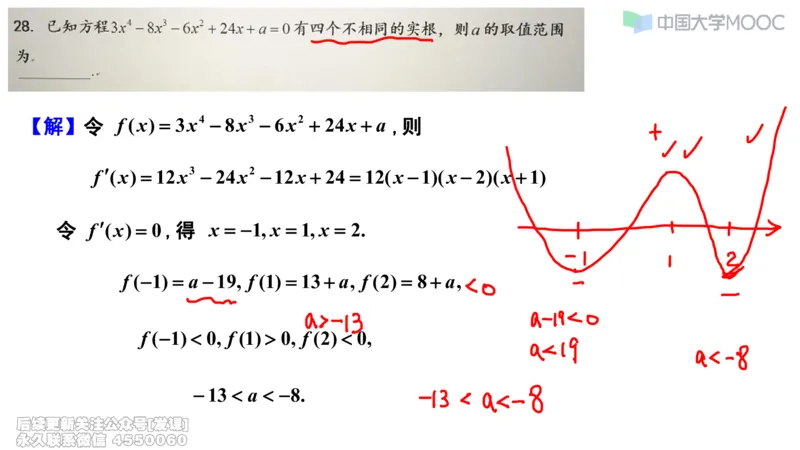 中国大学MOOC
28. 已知方程3x⁴－8x³－6x²＋24x＋a＝0有四个不相同的实根，则a的取值范围
为
【解】令 f(x)=3x⁴－8x³－6x²＋24x＋a,则
f′(x)=12x³－24x²－12x＋24=12(x－1)(x－2)(x＋1)
令 f′(x)=0,得 x=－1,x=1,x=2.
f(－1)=a－19,f(1)=13＋a,f(2)=8＋a, <0
a>-13
f(－1)<0,f(1)>0,f(2)<0,
－13<a<－8.
+
-1 1 2
- -
a-19<0
a<19
a<-8
-13<a<-8
后续更新关注公众号[发课]
永久联系微信 4550060